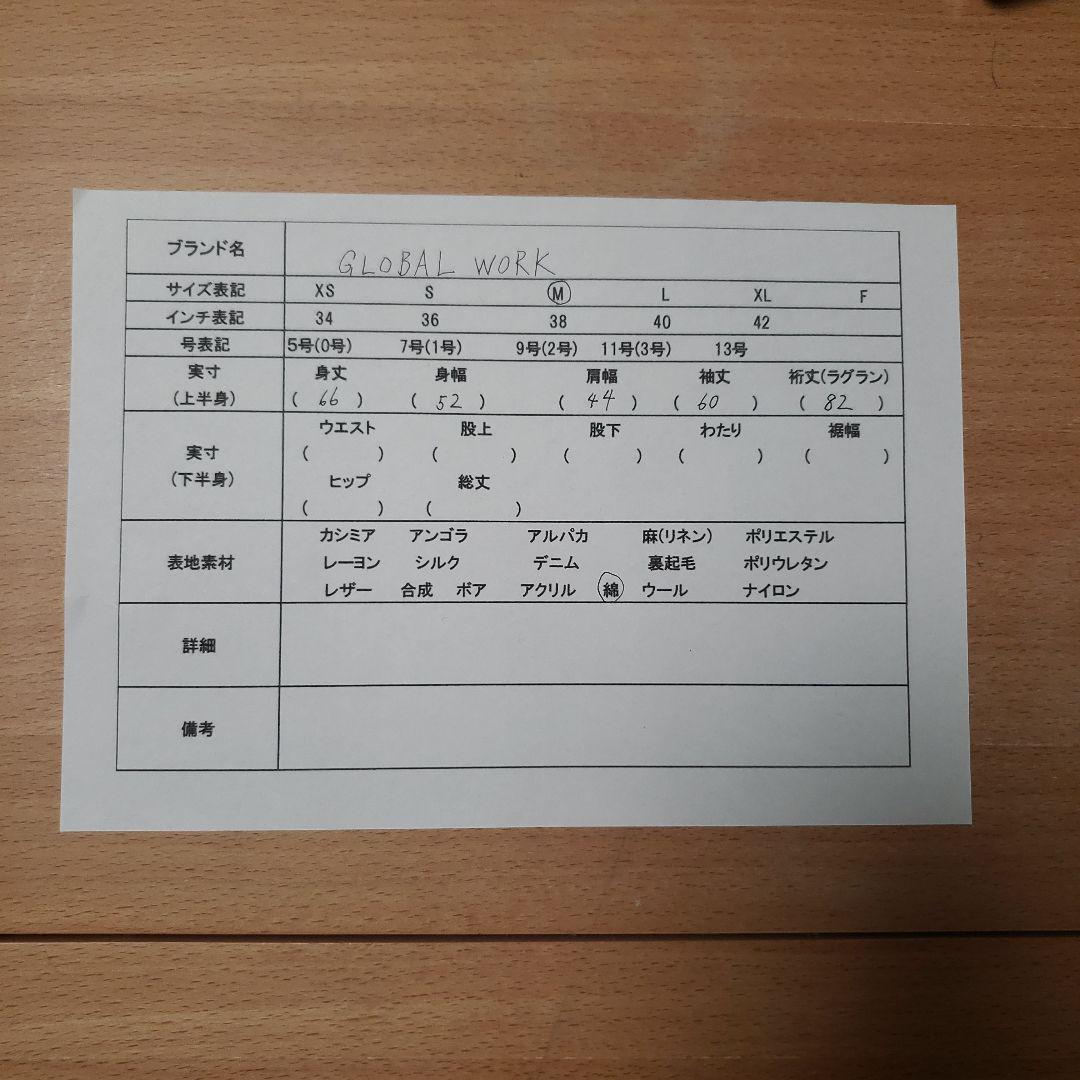 ブランド名 GLOBAL WORK
サイズ表記 XS S M L XL F
インチ表記 34 36 38 40 42
号表記 5号(0号) 7号(1号) 9号(2号) 11号(3号) 13号
実寸 身丈 身幅 肩幅 袖丈 裄丈(ラグラン)
(上半身) ( 66 ) ( 52 ) ( 44 ) ( 60 ) ( 82 )
ウエスト 股上 股下 わたり 裾幅
実寸 ( ) ( ) ( ) ( ) ( )
(下半身) ヒップ 総丈
( ) ( )
カシミア アンゴラ アルパカ 麻(リネン) ポリエステル
表地素材 レーヨン シルク デニム 裏起毛 ポリウレタン
レザー 合成 ボア アクリル 綿 ウール ナイロン
詳細
備考